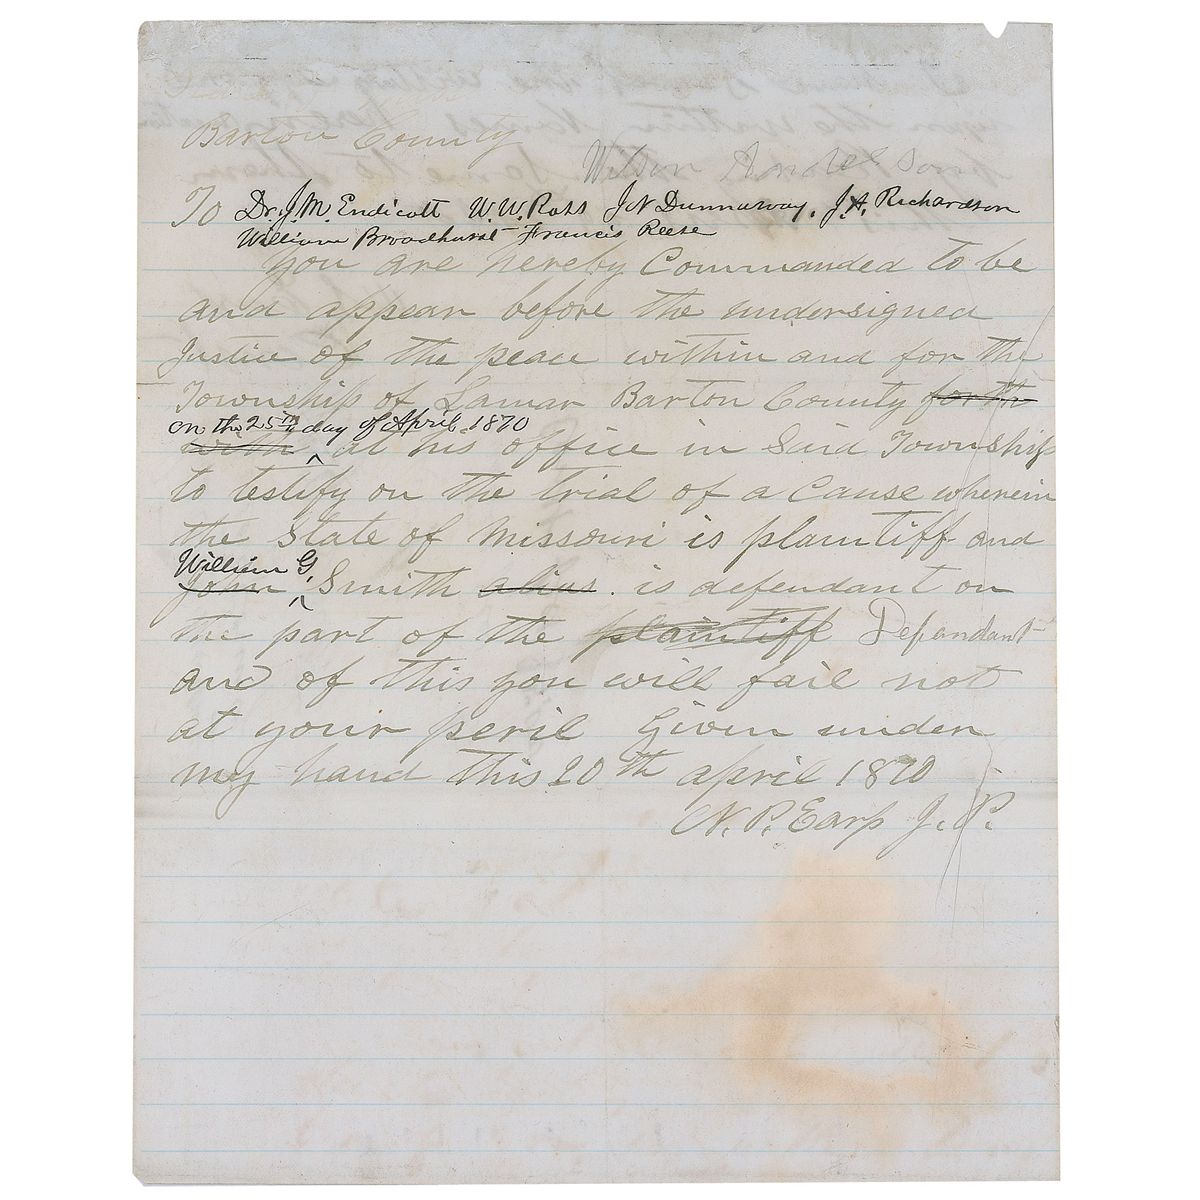 Barton County
Wilson
To Dr. J. M. Endicott W. W. Ross J N Dunnaway, J. A. Richardson
William Broadhurst Francis Reese
You are hereby Commanded to be
and appear before the undersigned
Justice of the peace within and for the
Township of Lamar Barton County forth
on the 25th day of April 1870
with at his office in Said Township
to testify on the trial of a Cause wherein
the State of Missouri is plaintiff and
William G.
John Smith alias . is defendant on
the part of the plaintiff Defandant
and of this you will fail not
at your peril Given under
my hand this 20th april 1870
N. P. Earp J. P.